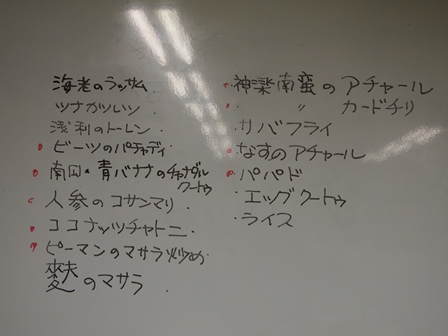 海老のラッサム
ツナカツレツ
浅利のトーレン
ビーツのパチャディ
南囗・青バナナのチャナダル
クートゥ
人参のコサンマリ
ココナッツチャトニ
ピーマンのマサラ炒め
麩のマサラ
神楽南蛮のアチャール
〃 カードチリ
サバフライ
なすのアチャール
パパド
エッグクートゥ
ライス